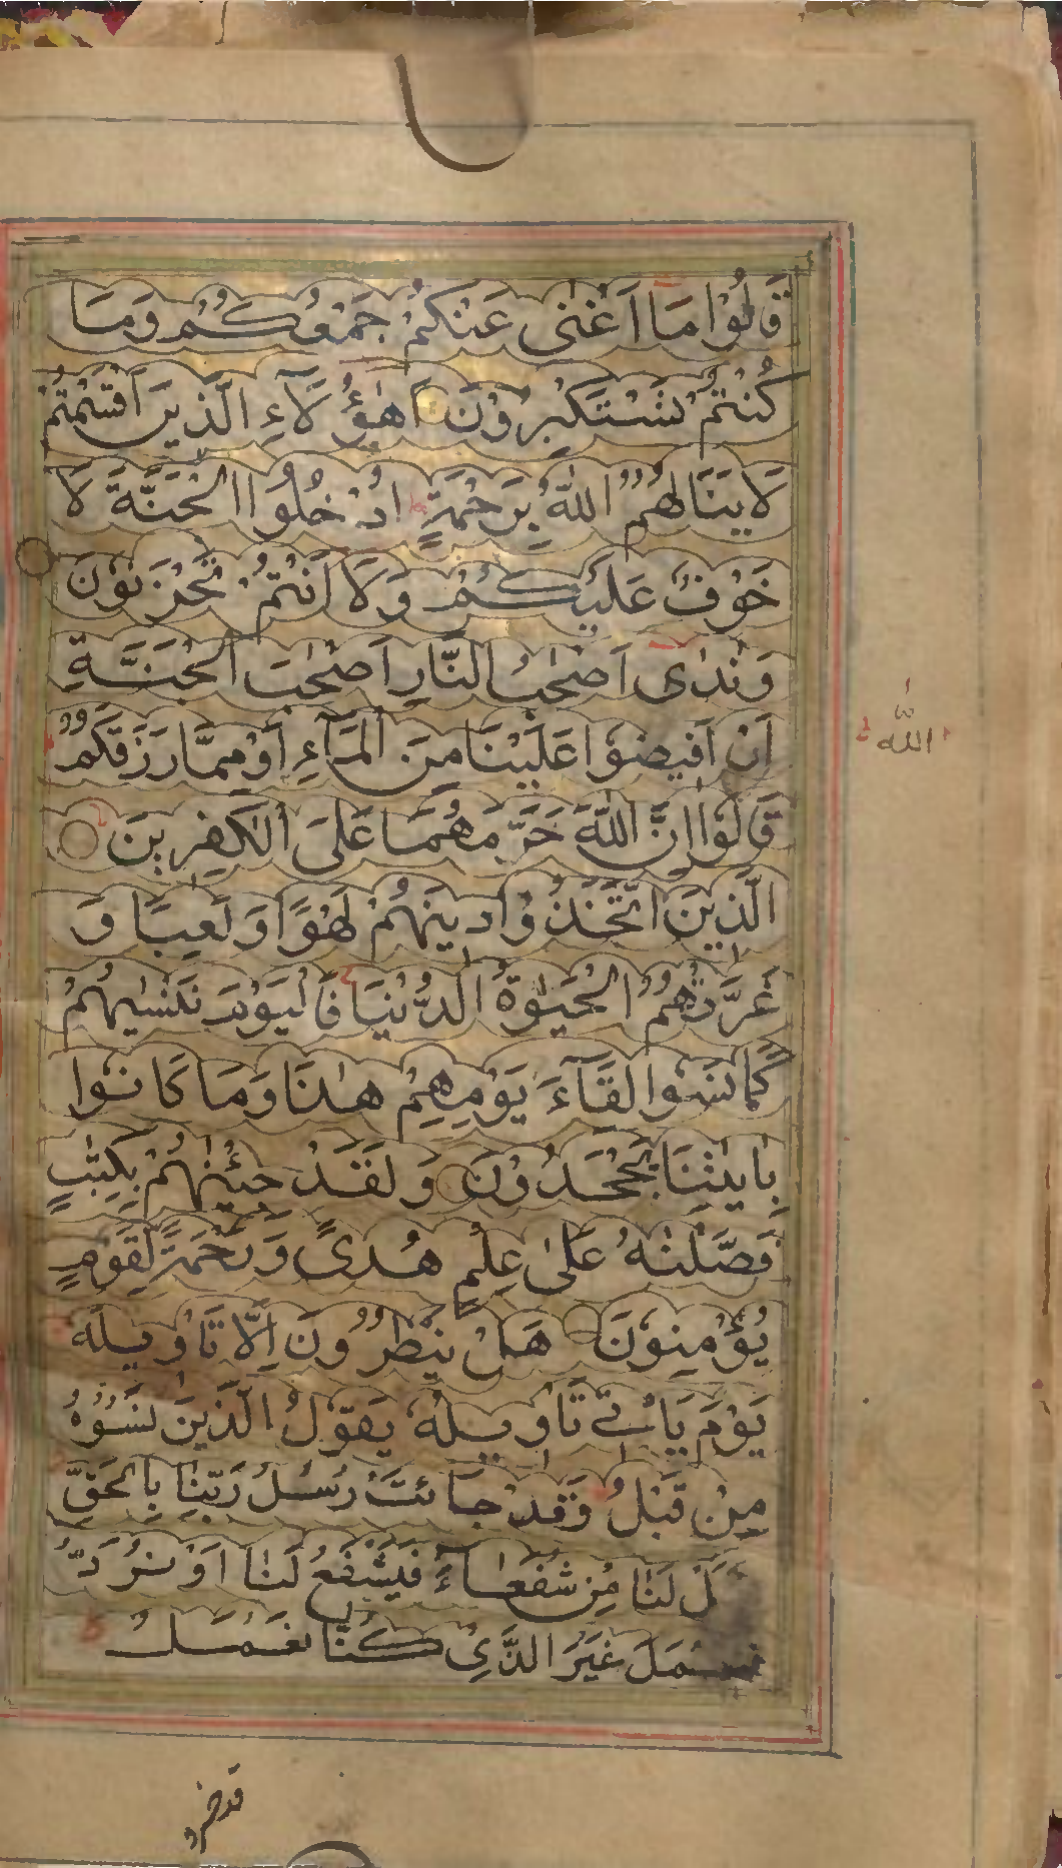 قَالُوْا مَا اَغْنٰى عَنْكُمْ جَمْعُكُمْ وَمَا
كُنْتُمْ تَسْتَكْبِرُوْنَ اَهٰؤُلَآءِ الَّذِيْنَ اَقْسَمْتُمْ
لَا يَنَالُهُمُ اللّٰهُ بِرَحْمَةٍ اُدْخُلُوا الْجَنَّةَ لَا
خَوْفٌ عَلَيْكُمْ وَلَا اَنْتُمْ تَحْزَنُوْنَ
وَنَادٰى اَصْحٰبُ النَّارِ اَصْحٰبَ الْجَنَّةِ
اَنْ اَفِيْضُوْا عَلَيْنَا مِنَ الْمَآءِ اَوْ مِمَّا رَزَقَكُمُ
اللّٰه
قَالُوْا اِنَّ اللّٰهَ حَرَّمَهُمَا عَلَى الْكٰفِرِيْنَ
الَّذِيْنَ اتَّخَذُوْا دِيْنَهُمْ لَهْوًا وَلَعِبًا وَ
غَرَّتْهُمُ الْحَيٰوةُ الدُّنْيَا فَالْيَوْمَ نَنْسٰيهُمْ
كَمَا نَسُوْا لِقَآءَ يَوْمِهِمْ هٰذَا وَمَا كَانُوْا
بِاٰيٰتِنَا يَجْحَدُوْنَ وَلَقَدْ جِئْنٰهُمْ بِكِتٰبٍ
فَصَّلْنٰهُ عَلٰى عِلْمٍ هُدًى وَرَحْمَةً لِقَوْمٍ
يُؤْمِنُوْنَ هَلْ يَنْظُرُوْنَ اِلَّا تَاْوِيْلَهٗ
يَوْمَ يَاْتِيْ تَاْوِيْلُهٗ يَقُوْلُ الَّذِيْنَ نَسُوْهُ
مِنْ قَبْلُ قَدْ جَائَتْ رُسُلُ رَبِّنَا بِالْحَقِّ
لَنَا مِنْ شُفَعَآءَ فَيَشْفَعُوْا لَنَا اَوْ نُرَدُّ
غَيْرَ الَّذِيْ كُنَّا نَعْمَلُ